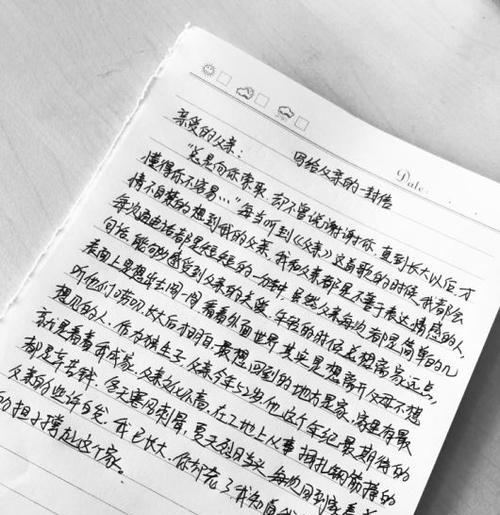 Date:
写给父亲的一封信
亲爱的父亲:
"总是向你索取 却不曾说谢谢你 直到长大以后才
懂得你不容易…" 每当听到《父亲》这首歌的时候,我都会
情不自禁的想到我的父亲。我和父亲都是不善于表达情感的人,
每次通电话都是短短的一分钟,虽然父亲每次都是简单的几
句话,能够感受到父亲的关爱。年轻的时候总想离家远点,
表面上是想出去闯一闯看看外面世界,其实是想离开父母不想
听他们唠叨。长大后 最想回到的地方是家,家里有最
想见的人。作为独生子,父亲今年 岁,他这个年纪最期待的
就是看着我成家。父亲文化不高,在工地上从事捆扎钢筋 的
都是辛苦钱。冬天寒风刺骨,夏天烈日 每次回到家看着
父亲的些许白发,我已长大,你却老了,我知道
的担子撑起这个家。